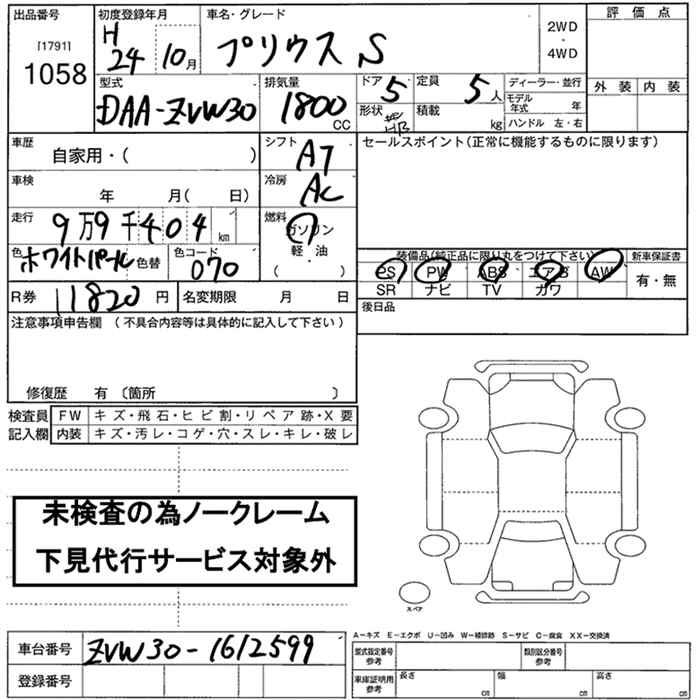 出品番号
[1791]
1058
初度登録年月
H
24 10月
車名・グレード
プリウス S
2WD
・
4WD
評価点
外装 内装
型式
DAA-ZVW30
排気量
1800
CC
ドア 5
形状
HB
定員 5人
積載 kg
ディーラー・並行
モデル年式 年
ハンドル 左・右
車歴
自家用・( )
シフト
AT
セールスポイント(正常に機能するものに限ります)
車検
年 月( 日)
冷房
AC
走行
9万9千404km
燃料
ガソリン
軽・油
( )
色
ホワイトパール
色替
色コード
070
装備品(純正品に限り丸をつけて下さい)
PS PW ABS エアB AW
SR ナビ TV ガワ
新車保証書
有・無
R券 11820円
名変期限 月 日
後日品
注意事項申告欄 (不具合内容等は具体的に記入して下さい)
修復歴 有 〔箇所 〕
検査員
記入欄
FW キズ・飛石・ヒビ割・リペア跡・X要
内装 キズ・汚レ・コゲ・穴・スレ・キレ・破レ
未検査の為ノークレーム
下見代行サービス対象外
スペア
車台番号 ZVW30-1612599
登録番号
A-キズ E-エクボ U-凹み W-補修跡 S-サビ C-腐食 XX-交換済
型式指定番号
参考
類別区分番号
参考
車庫証明用
参考
長さ cm
幅 cm
高さ cm